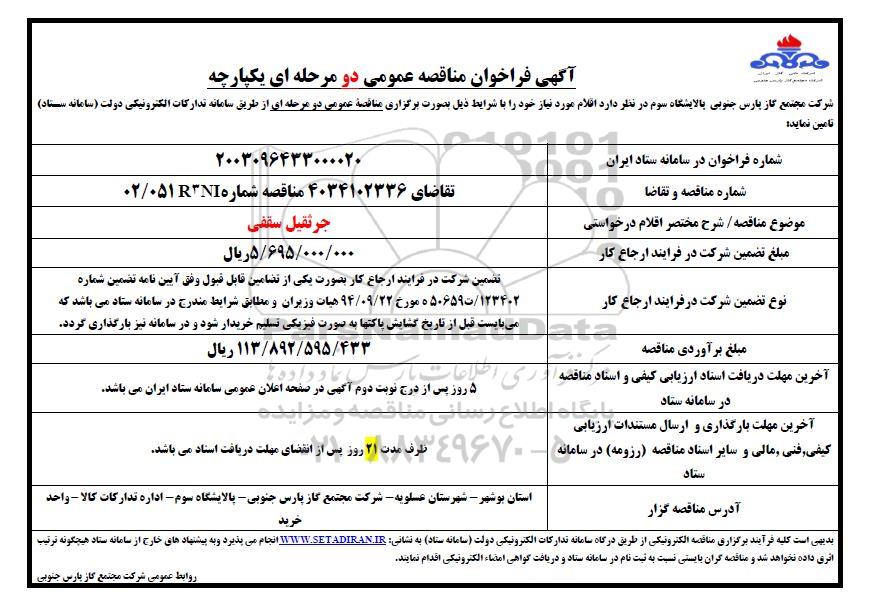 آگهی فراخوان مناقصه عمومی دو مرحله ای یکپارچه
شرکت ملی گاز ایران
شرکت مجتمع گاز پارس جنوبی
شرکت مجتمع گاز پارس جنوبی پالایشگاه سوم در نظر دارد اقلام مورد نیاز خود را با شرایط ذیل بصورت برگزاری مناقصۀ عمومی دو مرحله ای از طریق سامانه تدارکات الکترونیکی دولت (سامانه ستاد)
تامین نماید:
شماره فراخوان در سامانه ستاد ایران
۲۰۰۳۰۹۶۴۳۳۰۰۰۰۲۰
شماره مناقصه و تقاضا
تقاضای ۴۰۳۴۱۰۲۳۳۶ مناقصه شماره R۳NI ۰۲/۰۵۱
موضوع مناقصه/ شرح مختصر اقلام درخواستی
جرثقیل سقفی
مبلغ تضمین شرکت در فرایند ارجاع کار
۵/۶۹۵/۰۰۰/۰۰۰ریال
نوع تضمین شرکت درفرایند ارجاع کار
تضمین شرکت در فرایند ارجاع کار بصورت یکی از تضامین قابل قبول وفق آیین نامه تضمین شماره
۱۲۳۴۰۲/ت۵۰۶۵۹ ه مورخ ۹۴/۰۹/۲۲ هیات وزیران و مطابق شرایط مندرج در سامانه ستاد می باشد که
می‌بایست قبل از تاریخ گشایش پاکتها به صورت فیزیکی تسلیم خریدار شود و در سامانه نیز بارگذاری گردد.
مبلغ برآوردی مناقصه
۱۱۳/۸۹۲/۵۹۵/۴۳۳ ریال
آخرین مهلت دریافت اسناد ارزیابی کیفی و اسناد مناقصه
در سامانه ستاد
۵ روز پس از درج نوبت دوم آگهی در صفحه اعلان عمومی سامانه ستاد ایران می باشد.
آخرین مهلت بارگذاری و ارسال مستندات ارزیابی
کیفی,فنی ,مالی و سایر اسناد مناقصه (رزومه) در سامانه
ستاد
ظرف مدت ۲۱ روز پس از انقضای مهلت دریافت اسناد می باشد.
آدرس مناقصه گزار
استان بوشهر– شهرستان عسلویه– شرکت مجتمع گاز پارس جنوبی– پالایشگاه سوم– اداره تدارکات کالا –واحد
خرید
بدیهی است کلیه فرآیند برگزاری مناقصه الکترونیکی از طریق درگاه سامانه تدارکات الکترونیکی دولت (سامانه ستاد) به نشانی: WWW.SETADIRAN.IR انجام می پذیرد وبه پیشنهاد های خارج از سامانه ستاد هیچگونه ترتیب
اثری داده نخواهد شد و مناقصه گران بایستی نسبت به ثبت نام در سامانه ستاد و دریافت گواهی امضاء الکترونیکی اقدام نمایند.
روابط عمومی شرکت مجتمع گاز پارس جنوبی
ParsNamadData
پایگاه اطلاع رسانی مناقصه و مزایده
۰۲۱-۸۸۳۴۹۶۷۰-۵